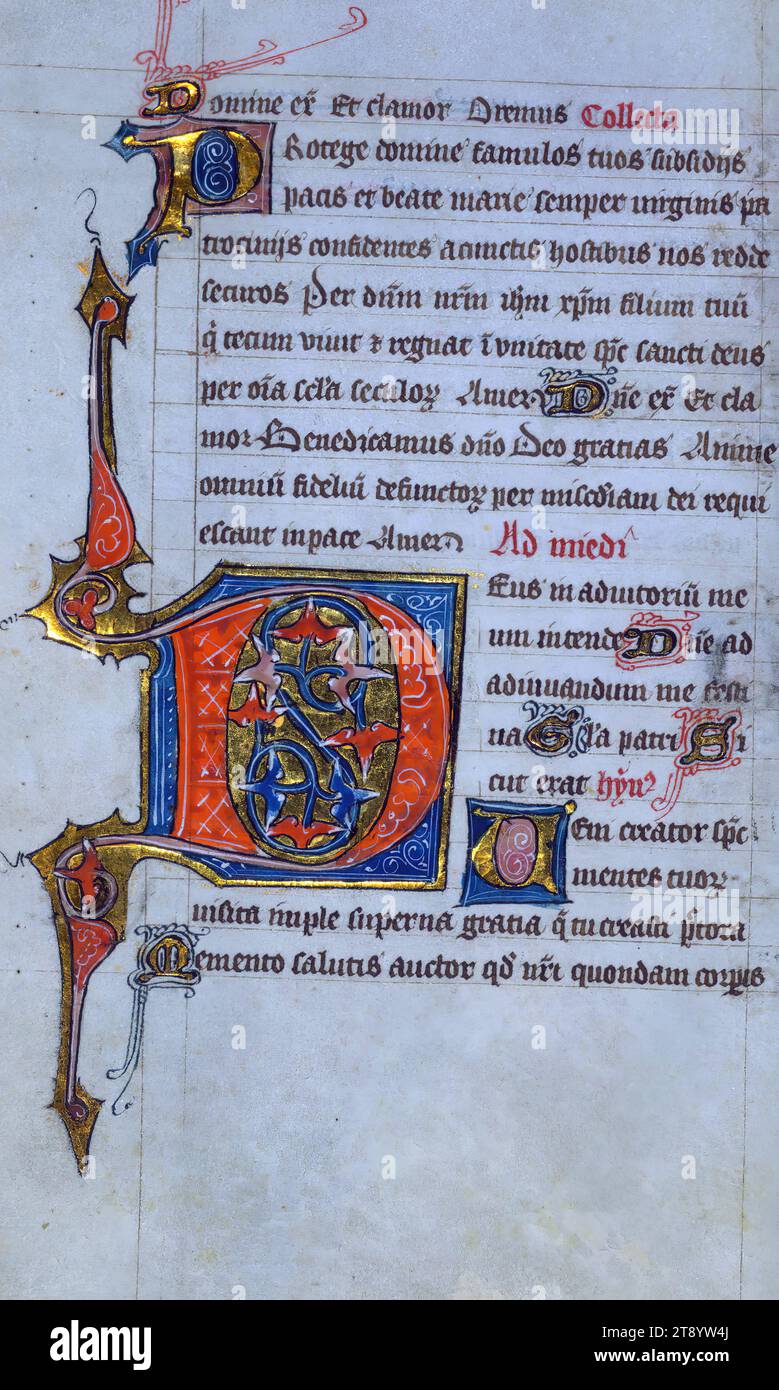 Domine ex̄ Et clamor Oremus Collecta
PRotege domine famulos tuos subsidijs
pacis et beate marie semper uirginis pa
trocinijs confidentes acunctis hostibus nos redde
securos Per dn̄m nr̄m ihm̄ xp̄m filium tuū
q̄ tecum viuit ⁊ regnat ī vnitate sp̄c sancti deus
per oīa scl̄a seculoꝝ Amen Dn̄e ex̄ Et cla
mor Benedicamus dn̄o Deo gratias Anime
omniū fideliū defunctoꝝ per mis̄cdiam dei requi
escant inpace Amen Ad miedi
DEus in adiutoriū me
um intende Dn̄e ad
adiuuandum me festi
na Gl̄a patri Si
cut erat hyn̄ꝰ
UEni creator sp̄c
mentes tuoꝝ
uisita imple superna gratia q̄ tu creasti p̄ctora
Memento salutis auctor qd̄ nr̄i quondam corp̄is
alamy
Image ID: 2T8YW4J
www.alamy.com